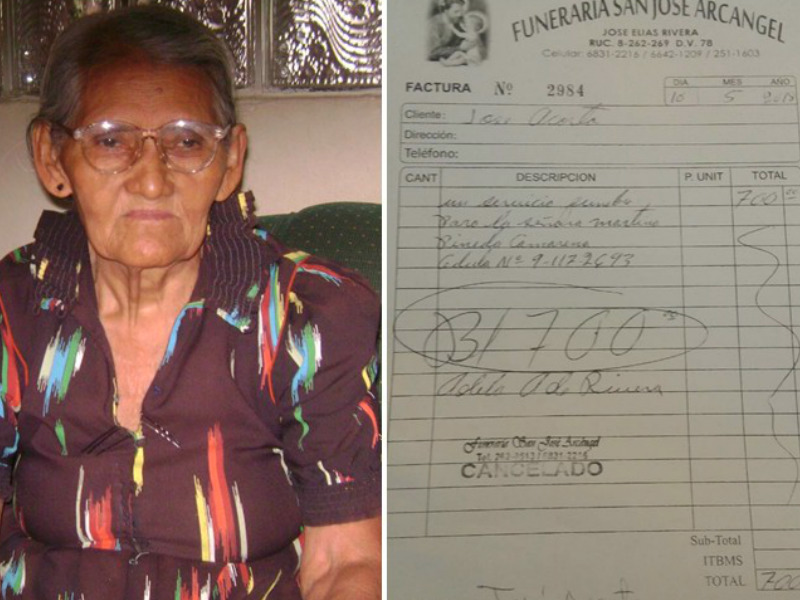 FUNERARIA SAN JOSE ARCANGEL
JOSE ELIAS RIVERA
RUC. 8-262-269 D.V. 78
Celular: 6831-2216 / 6642-1209 / 251-1603
FACTURA Nº 2984
DIA MES AÑO
10 5
Cliente: Jose Acosta
Dirección:
Teléfono:
CANT DESCRIPCION P. UNIT TOTAL
un servicio 700 00
Para la señora
Pinedo Camarena
Nº 9-117-2693
B/ 700
Rivera
Funeraria San José Arcángel
CANCELADO
Sub-Total
ITBMS
TOTAL 700